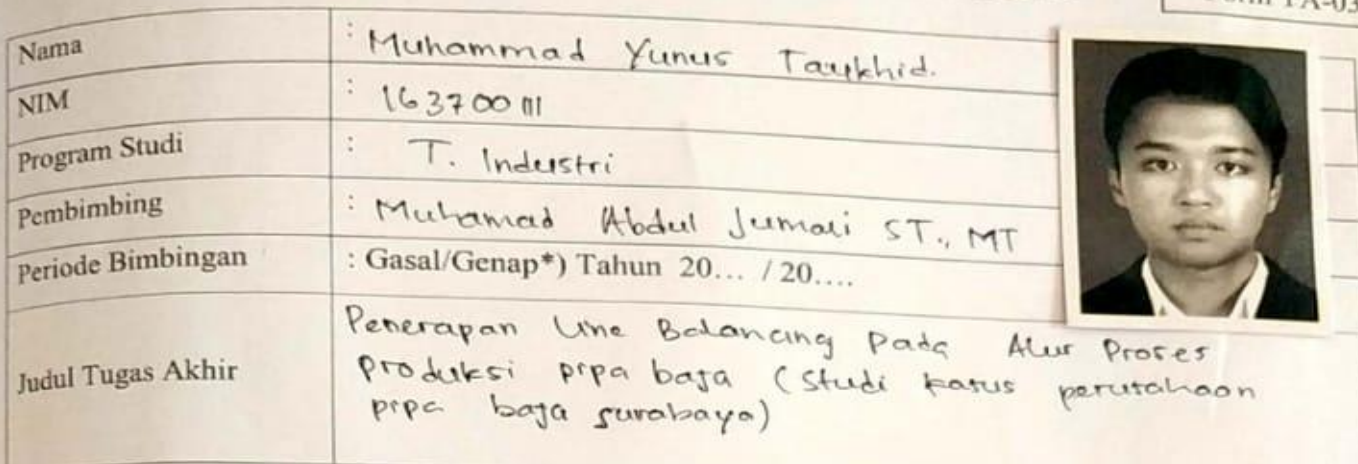 TA-03
Nama : Muhammad Yunus Taukhid.
NIM : 163700111
Program Studi : T. Industri
Pembimbing : Muhamad Abdul Jumali ST., MT
Periode Bimbingan : Gasal/Genap*) Tahun 20... / 20....
Judul Tugas Akhir Penerapan Line Balancing Pada Alur Proses
produksi pipa baja (Studi kasus perusahaan
pipa baja surabaya)